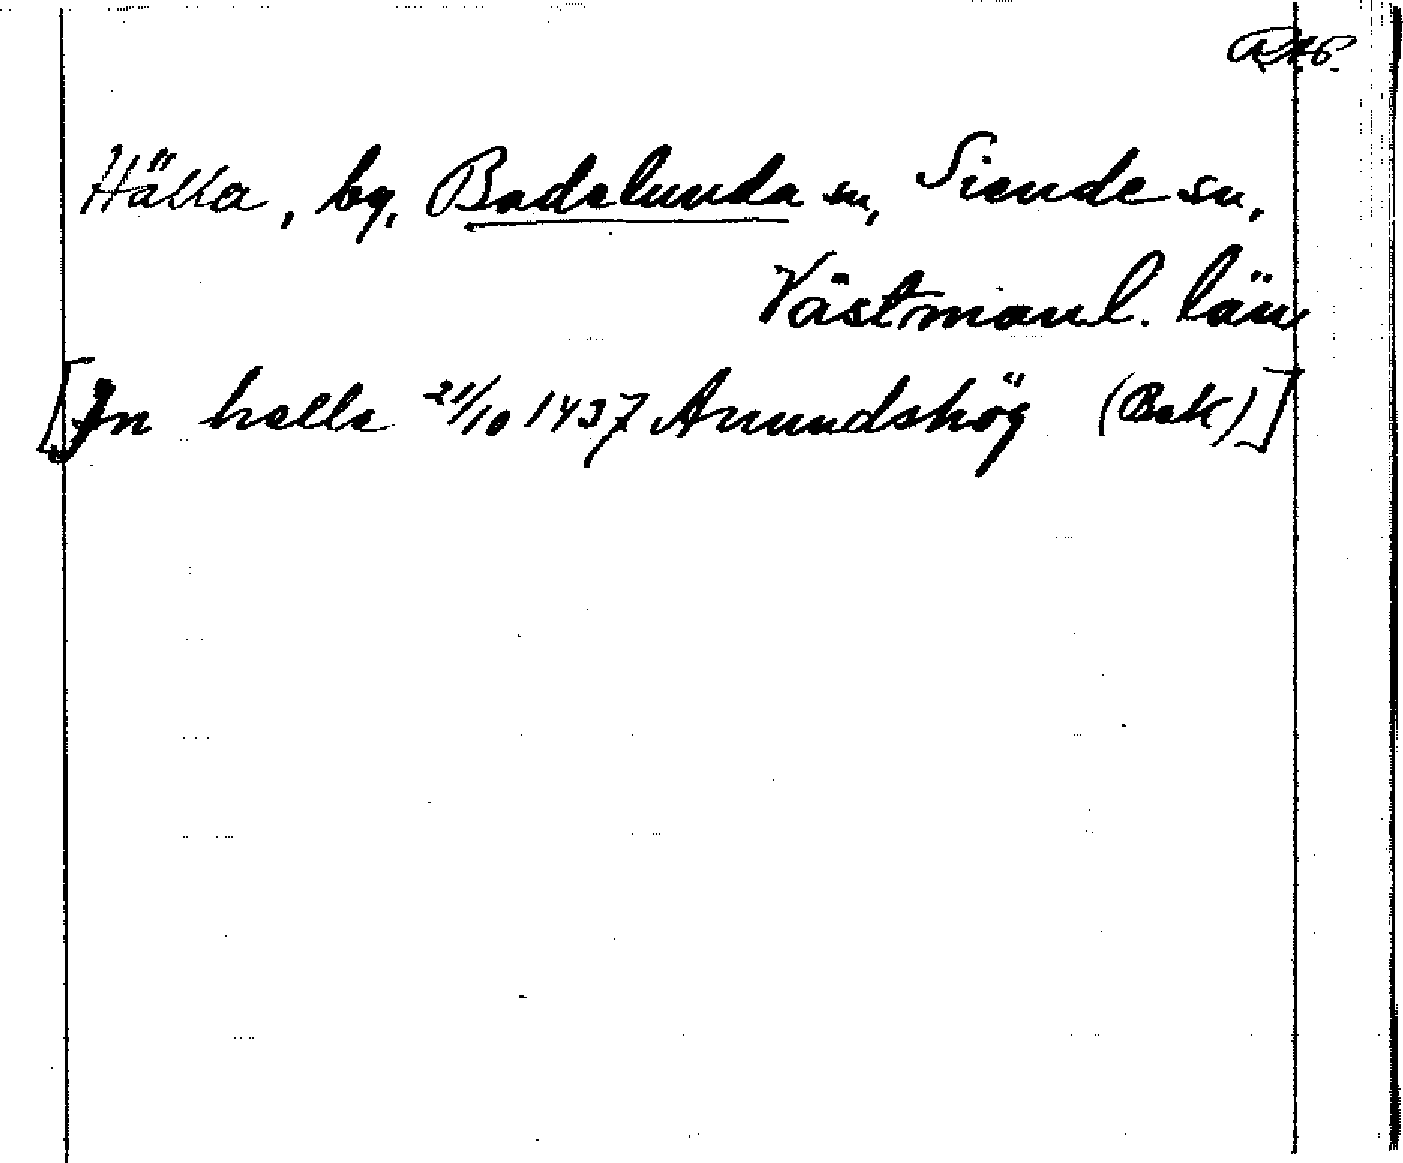 Hälla, by, Badelunda sn, Siende sn,
Västmanl. län
[In halla 21/10 1437 Anundshög (Bak)]